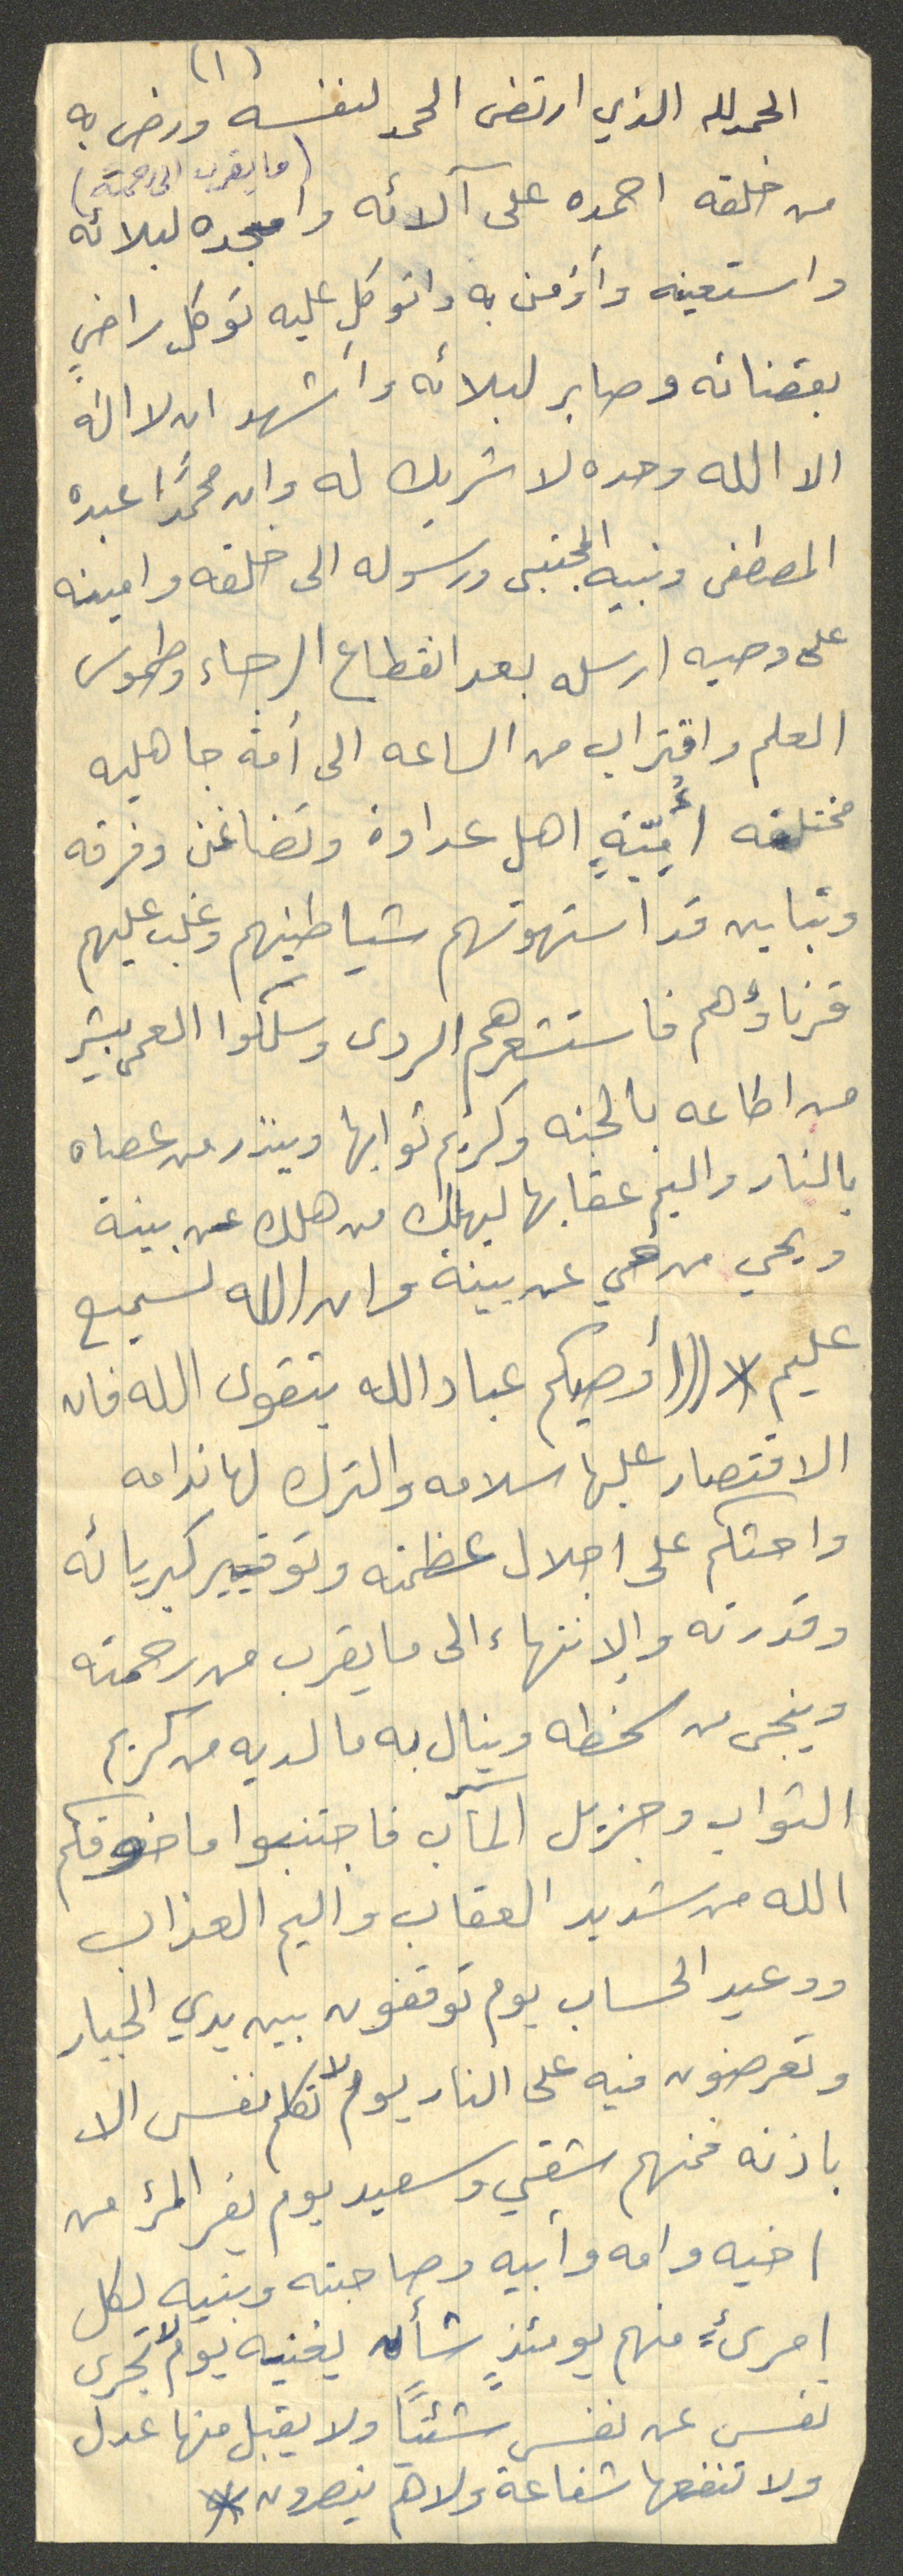 (١)
الحمد لله الذي ارتضى الحمد لنفسه ورضى به
(ما يقرب الى رحمته)
من خلقه احمده على آلائه وامجده لبلائه
واستعينه وأؤمن به واتوكل عليه توكل راضٍ
بقضائه وصابر لبلائه وأشهد ان لا اله
الا الله وحده لا شريك له وان محمدًا عبده
المصطفى ونبيه المجتبى ورسوله الى خلقه وامينه
على وحيه ارسله بعد انقطاع الرجاء وطموس
العلم واقتراب من الساعه الى أمة جاهليه
مختلفه أُمِّيّةٍ اهل عداوة وتضاغن وفرقه
وتباين قد استهوتهم شياطينهم وغلب عليهم
قرناؤهم فاستشعرهم الردى وسلكوا العمى يبشر
من اطاعه بالجنه وكريم ثوابها وينذر من عصاه
بالنار واليم عقابها ليهلك من هلك عن بينة
ويحي من حي عن بينة وان الله لسميع
عليم * ((( أوصيكم عباد الله بتقوى الله فان
الاقتصار عليها سلامه والترك لها ندامه
واحثكم على اجلال عظمته وتوقير كبريائه
وقدرته والانتهاء الى ما يقرب من رحمته
وينجى من سخطه وينال به ما لديه من كريم
الثواب وجزيل المآب فاجتنبوا ما خوفكم
الله من شديد العقاب واليم العذاب
ووعيد الحساب يوم توقفون بين يدي الجبار
وتعرضون فيه على النار يوم لا تكلم نفس الا
باذنه فمنهم شقي وسعيد يوم يفر المرء من
اخيه وامه وأبيه وصاحبته وبنيه لكل
امرىءٍ منهم يومئذٍ شأن يغنيه يوم لا تجزى
نفس عن نفس شئياً ولا يقبل منها عدل
ولا تنفعها شفاعة ولا هم ينصرون *